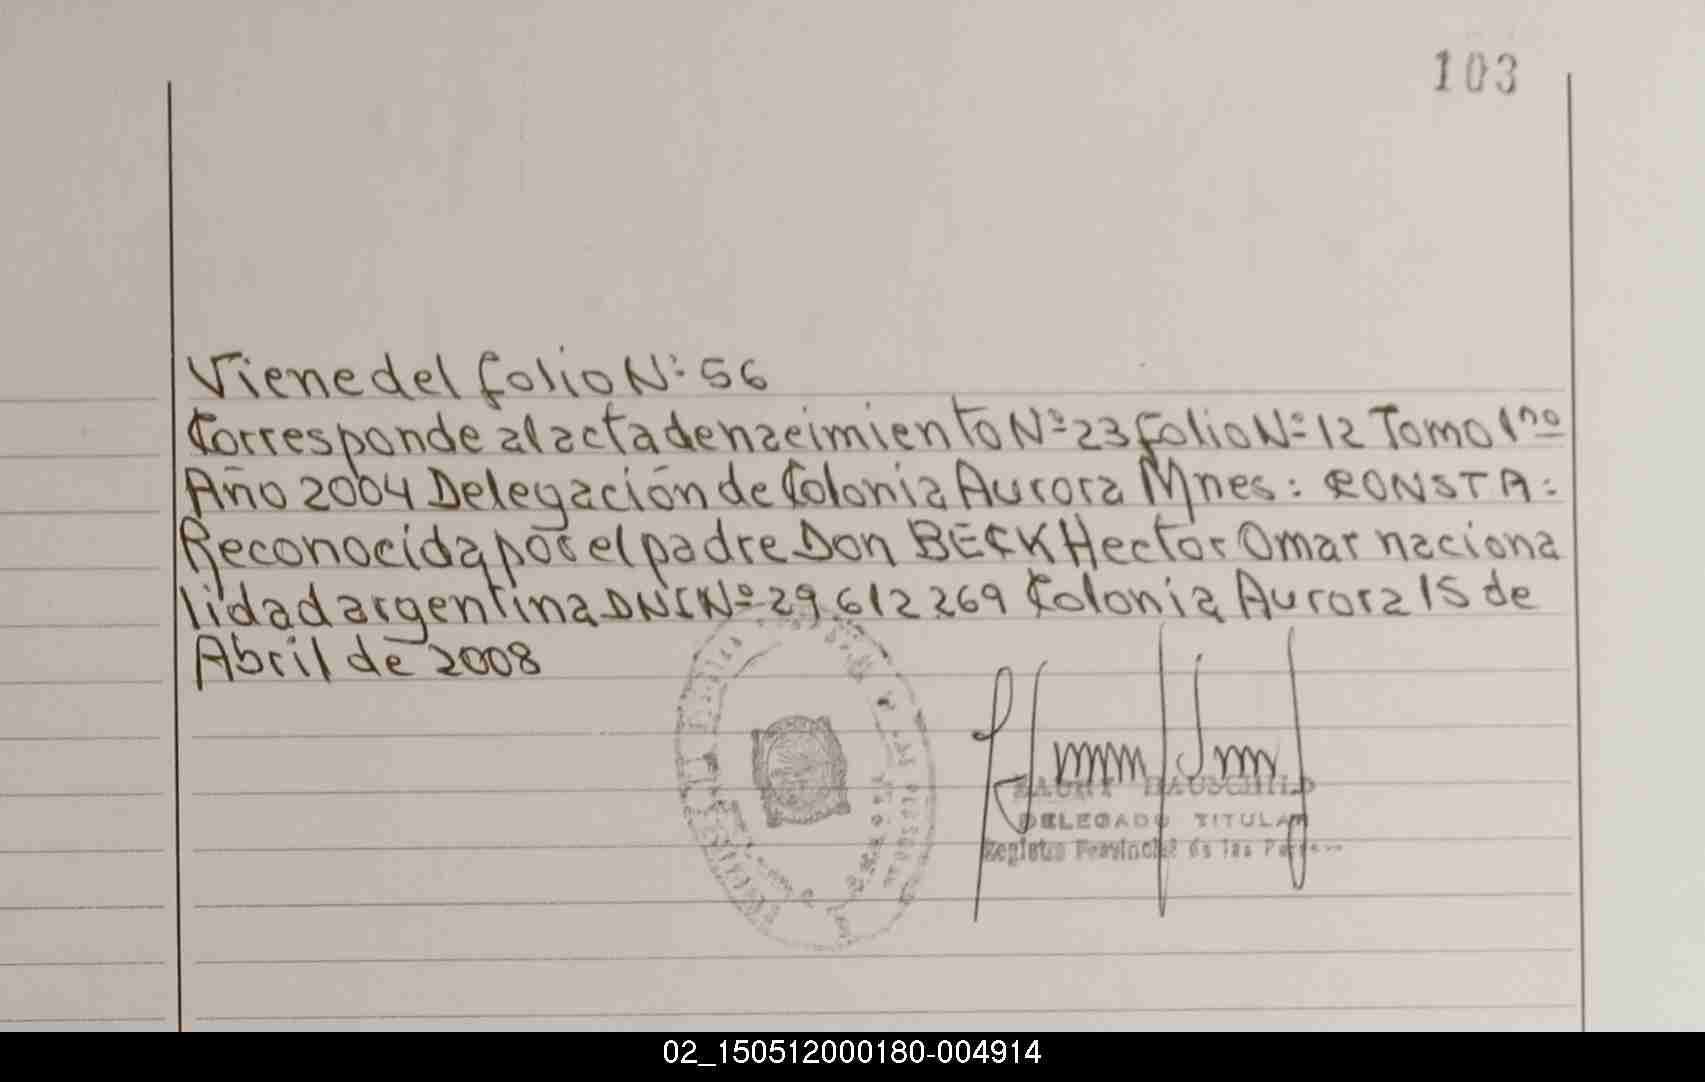 103
Viene del folio Nº: 56
Corresponde al acta de nacimiento Nº 23 folio Nº 12 Tomo 1ro
Año 2004 Delegación de Colonia Aurora Mnes: CONSTA:
Reconocida por el padre Don BECK Hector Omar naciona
lidad argentina DNI Nº 29.612.269 Colonia Aurora 15 de
Abril de 2008
HAUSCHILD
DELEGADO TITULAR
Registro Provincial de las
02_150512000180-004914